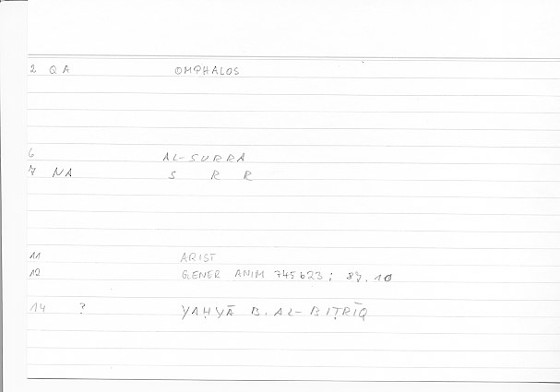 2 QA OMPHALOS
6 AL-SURRA
7 NA S R R
11 ARIST
12 GENER ANIM 745b23; 84.10
14 ? YAḤYĀ B. AL-BIṬRĪQ